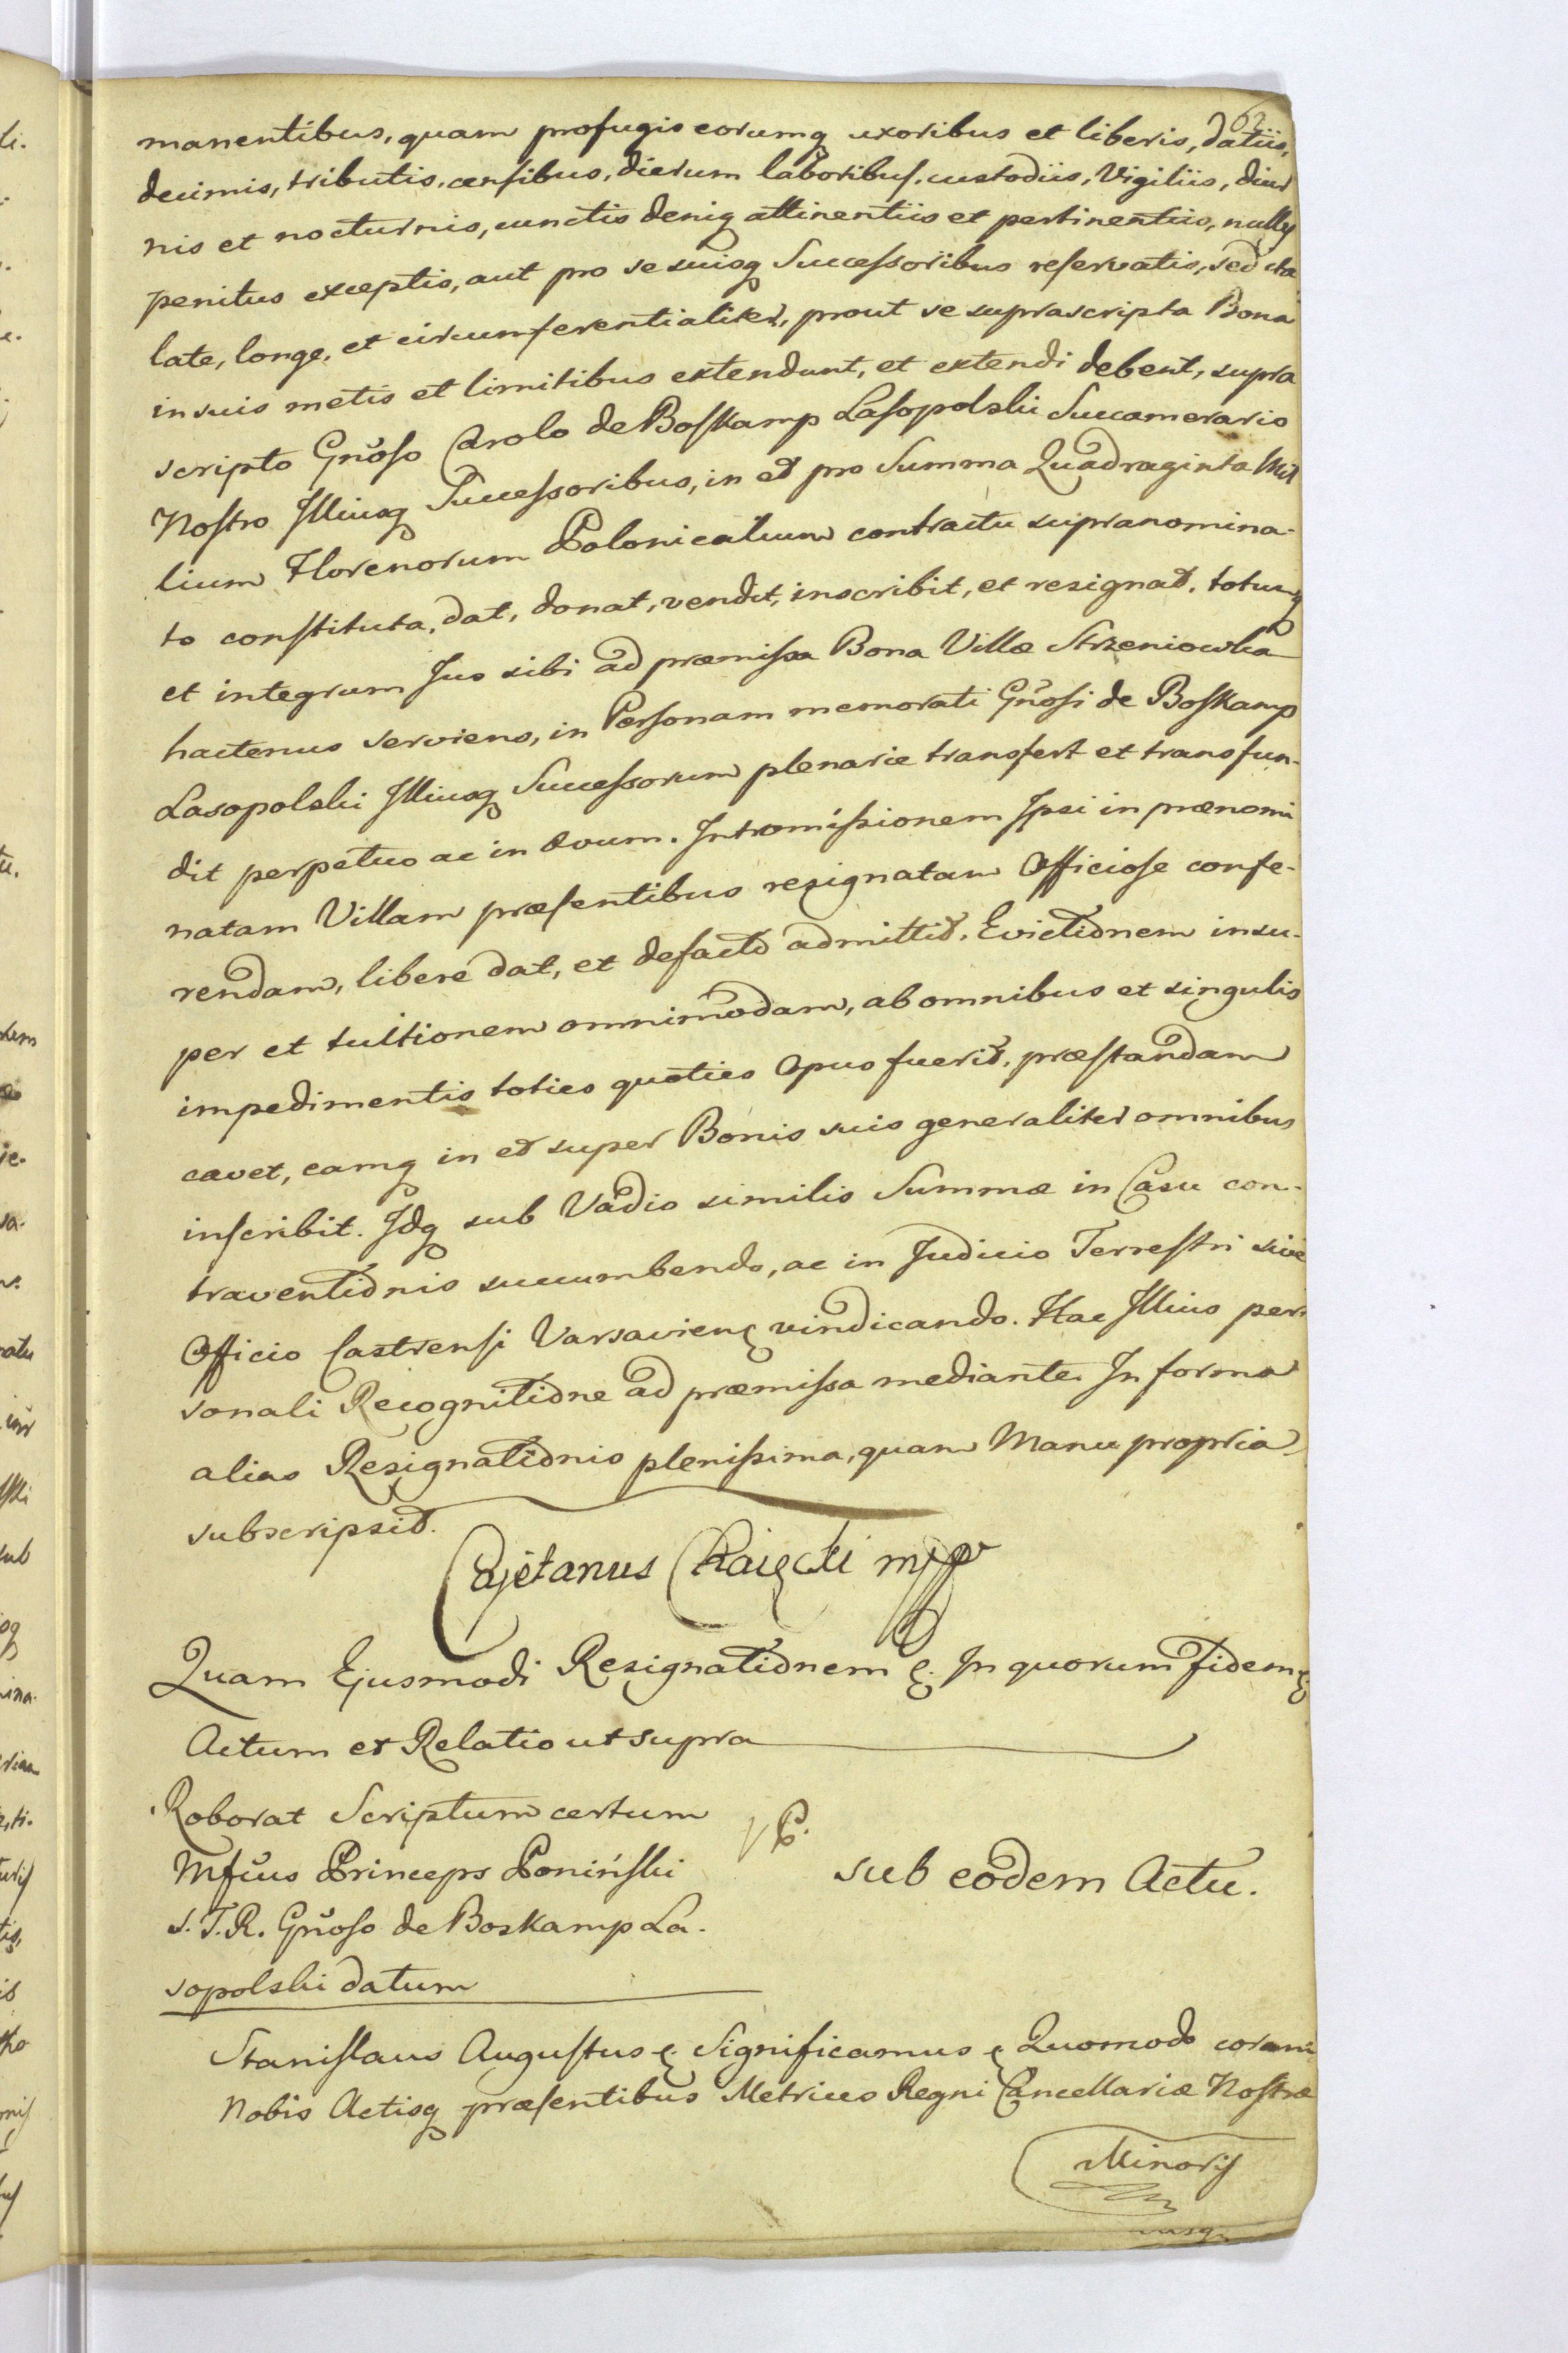 62
manentibus, quam profugis eorumq uxoribus et liberis, datiis,
decimis, tributis, censibus, dierum laboribus, custodiis, Vigiliis, diur
nis et nocturnis, cunctis deniq attinentiis et pertinentiis, nullis
penitus exceptis, aut pro se suisq Successoribus reservatis, sed ita
late, longe, et circumferentialiter, prout se suprascripta Bona
in suis metis et limitibus extendunt, et extendi debent, supra
scripto Gnoso Carolo de Boskamp Lasopolski Succamerario
Nostro Illiusq Successoribus, in et pro Summa Quadraginta Mil
lium Florenorum Polonicalium contractu supranomina-
to constituta, dat, donat, vendit, inscribit, et resignat, totumq
et integrum Jus sibi ad præmissa Bona Villæ Strzeniowka
hactenus serviens, in Personam memorati Gnosi de Boskamp
Lasopolski Illiusq Successorum plenarie transfert et transfun-
dit perpetuo ac in ævum. Intromissionem Ipsi in prænomi
natam Villam præsentibus resignatam Officiose confe-
rendam, libere dat, et defacto admittit. Evictionem insu-
per et tuitionem omnimodam, ab omnibus et singulis
impedimentis toties quoties opus fuerit, præstandam
cavet, eamq in et super Bonis suis generaliter omnibus
inscribit. Idq sub Vadio similis Summæ in Casu con-
traventionis succumbendo, ac in Judicio Terrestri sive
Officio Castrensi Varsavien vindicando. Hac Illius per
sonali Recognitione ad præmissa mediante. In forma
alias Resignationis plenissima, quam Manu propria
subscripsit.
Cajetanus mpp
Quam Ejusmodi Resignationem &. In quorum fidem &
Actum et Relatio ut supra
Roborat Scriptum certum
Mfcus Princeps Poniński
S. T. R. Gnoso de Boskamp La-
sopolski datum
sub eodem Actu.
Stanislaus Augustus &. Significamus & Quomodo coram
Nobis Actisq præsentibus Metrices Regni Cancellariæ Nostræ
Minoris